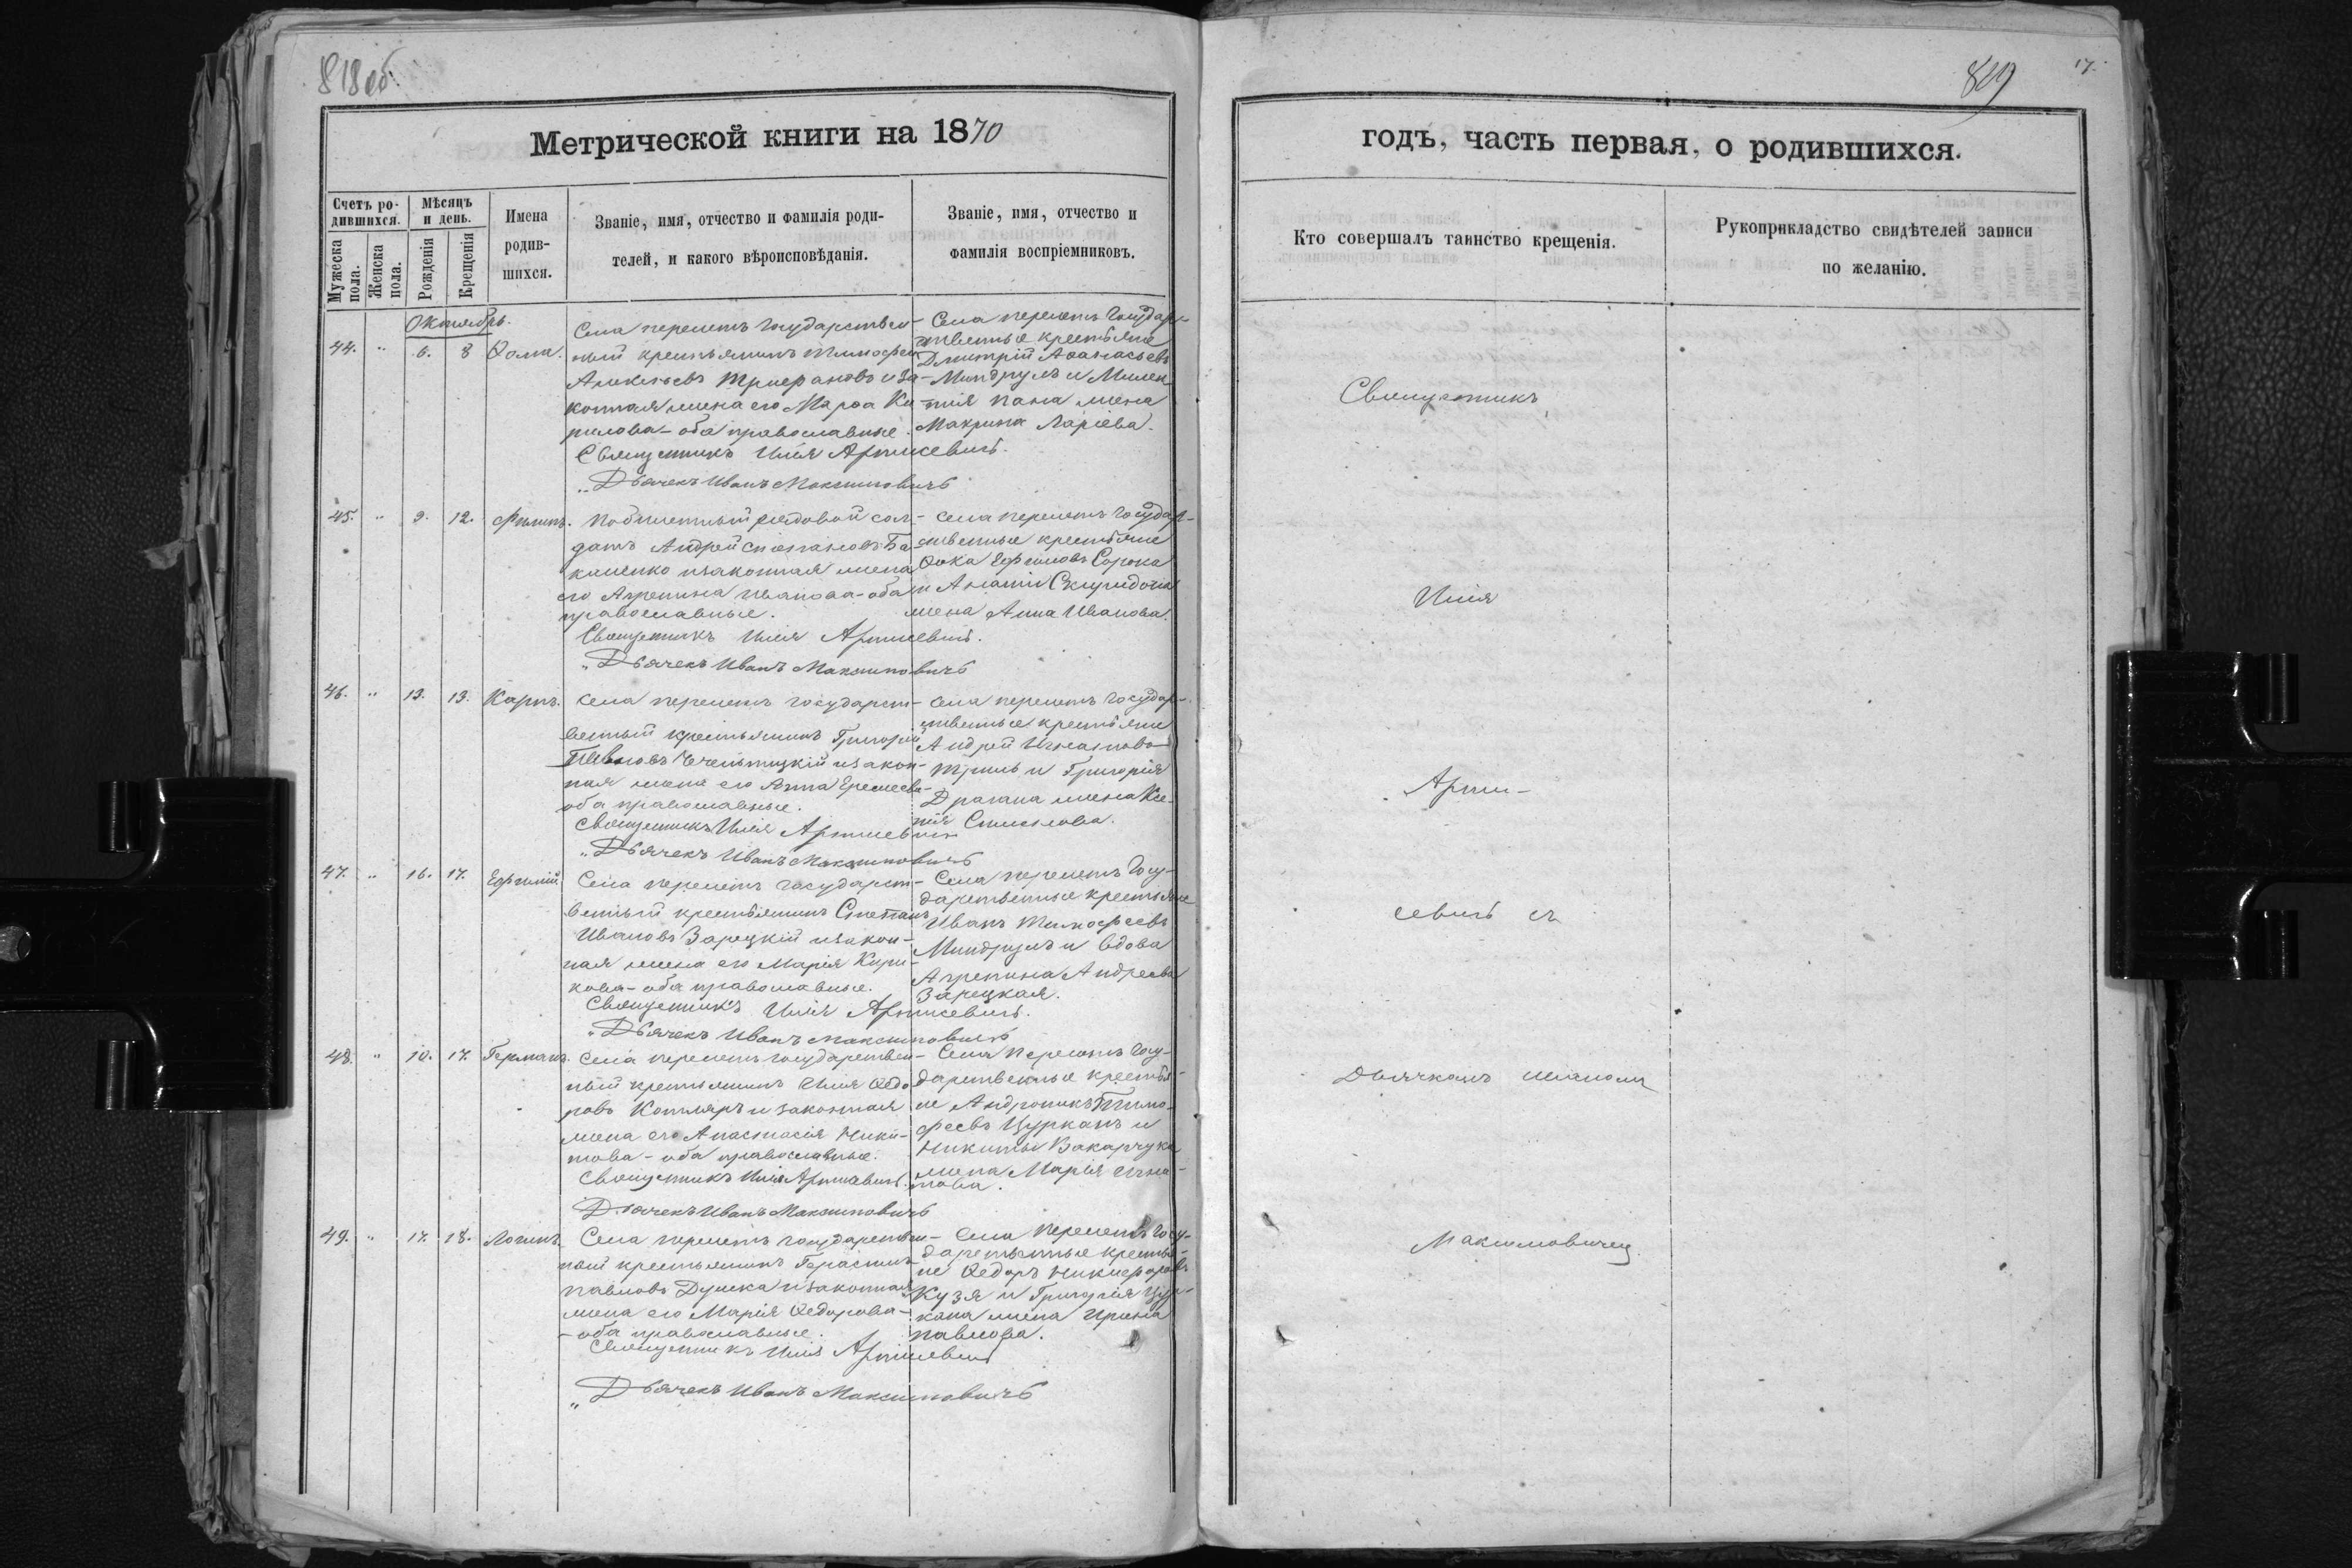 818об.
Метрической книги на 1870
Счетъ ро-
дившихся.
Мѣсяцъ
и день.
Имена
родив-
шихся.
Званіе, имя, отчество и фамилія роди-
телей, и какого вѣроисповѣданія.
Званіе, имя, отчество и
фамилія воспріемниковъ.
Мужеска
пола.
Женска
пола.
Рожденія
Крещенія
Октябрь.
44. " 6. 8 Ѳома.
Села перелетъ государствен-
ный крестьянинъ Тимофей
Алексѣевъ и за-
конная жена его Марѳа Ки-
рилова - оба православные.
Священникъ Илія
"Дьячекъ Иванъ Максимовичъ
Села перелетъ государ-
ственные крестьяне
Димитрій Аѳанасьевъ
Миндруль и Мелен-
тія Пана жена
Макрина Ларіева.
45. " 9. 12. Филипъ.
Побилетный рядовой сол-
датъ Андрей Степановъ Ба-
каленко и законная жена
его Агрепина Иванова - оба
православные.
Священникъ Илія
"Дьячекъ Иванъ Максимовичъ
Села перелетъ государ-
ственные крестьяне
Ѳока Ефимовъ Сорока
и
жена Анна Иванова.
46. " 13. 13. Карпъ.
Села перелетъ государст-
венный крестьянинъ Григорій
и закон-
ная жена его Анна Еремеева-
оба православные.
Священникъ Илія
"Дьячекъ Иванъ Максимовичъ
Села перелетъ государ-
ственные крестьяне
Андрей Игнатовъ
и Григорія
Драгана жена Ксе-
нія
47. " 16. 17. Ефимій
Села перелетъ государст-
венный крестьянинъ Степанъ
Ивановъ Зарецкій и закон-
ная жена его Марія Кири-
кова - оба православные.
Священникъ Илія
"Дьячекъ Иванъ Максимовичъ
Села перелетъ Госу-
дарственные крестьяне
Иванъ Тимофеевъ
Миндруль и вдова
Агрепина Андреева
Зарецкая.
48. " 10. 17. Германъ.
Села перелетъ государствен-
ный крестьянинъ Илія Ѳедо-
ровъ Котляръ и законная
жена его Анастасія Ники-
това - оба православные.
Священникъ Илія
Дьячекъ Иванъ Максимовичъ
Села перелетъ Госу-
дарственные крестья-
не Андроникъ Тимо-
феевъ Цурканъ и
Никиты Вакарчука
жена Марія Игна-
това.
49. " 17. 18. Логинъ.
Села перелетъ государствен-
ный крестьянинъ Герасимъ
Павловъ Душка и законная
жена его Марія Ѳедорова-
- оба православные.
Священникъ Илія
"Дьячекъ Иванъ Максимовичъ
Села перелетъ Госу-
дарственные крестья-
не Ѳедоръ Никифоровъ
Кузя и Григорія Цур-
кана жена Ирина
Павлова.
819
17.
годъ, часть первая, о родившихся.
Кто совершалъ таинство крещенія.
Рукоприкладство свидѣтелей записи
по желанію.
Священникъ
Илія
севичъ съ
Дьячкомъ Иваномъ
Максимовичемъ